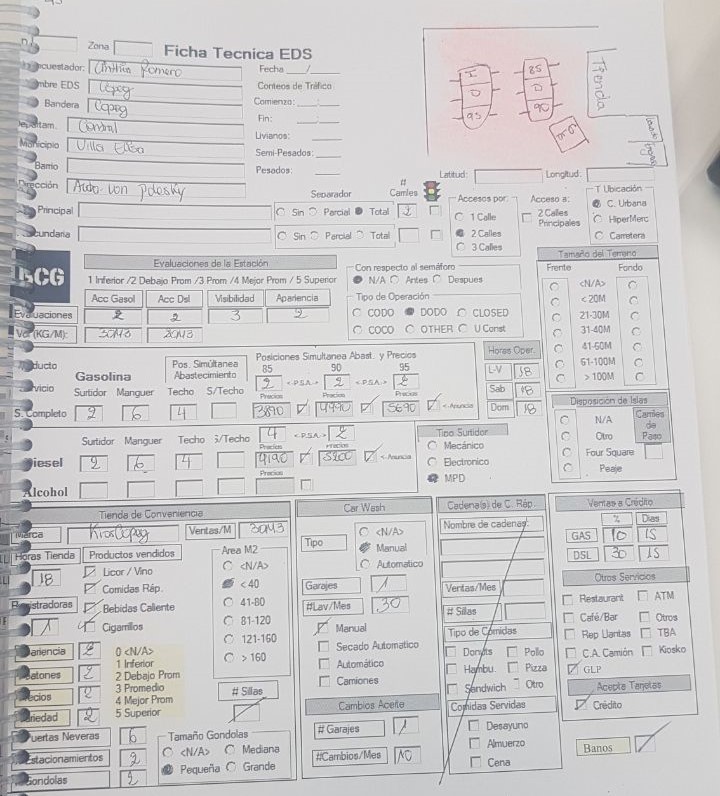 Zona
Ficha Tecnica EDS
Cinthia Romero
Fecha __/__
mbre EDS Copeg
Conteos de Tráfico
Bandera Copeg
Comienzo:
Central
Fin:
Municipio Villa Elisa
Livianos:
Barrio
Semi-Pesados:
Pesados:
Dirección
85
95
90
Tienda
Latitud:
Longitud:
Separador
# Carriles
Principal
Sin Parcial Total 2
cundaria
Sin Parcial Total
Accesos por:
1 Calle
2 Calles
3 Calles
Acceso a:
2 Calles Principales
T Ubicación
C. Urbana
HiperMerc
Carretera
Evaluaciones de la Estación
1 Inferior /2 Debajo Prom /3 Prom /4 Mejor Prom / 5 Superior
Acc Gasol Acc Dsl Visibilidad Apariencia
Evaluaciones 2 2 3 2
Vol (KG/M): 30M3 20M3
Con respecto al semáforo
N/A Antes Despues
Tipo de Operación
CODO DODO CLOSED
COCO OTHER U Const
Tamaño del Terreno
Frente Fondo
<N/A>
< 20M
21-30M
31-40M
41-60M
61-100M
> 100M
Gasolina
Pos. Simúltanea Abastecimiento
Posiciones Simultanea Abast. y Precios
85 90 95
2 <-P.S.A.-> 2 <-P.S.A.-> 2
Surtidor Manguer Techo S/Techo
Precios Precios Precios
S. Completo 2 6 4 3890 4990 5690 <-Anuncia
Horas Oper.
L-V 18
Sab 18
Dom 18
Surtidor Manguer Techo S/Techo 4 <-P.S.A.-> 2
Precios Precios
iesel 2 6 4 4190 5200 <-Anuncia
Precios
Alcohol
Tipo Surtidor
Mecánico
Electronico
MPD
Disposición de Islas
N/A
Otro
Four Square
Peaje
Carriles de Paso
Tienda de Conveniencia
Marca KiosCopeg Ventas/M 30M3
Horas Tienda
18
Registradoras
1
Productos vendidos
Licor / Vino
Comidas Ráp.
Bebidas Caliente
Cigarrillos
Area M2
<N/A>
< 40
41-80
81-120
121-160
> 160
# Sillas
pariencia 2
atones 2
recios 2
riedad 2
0 <N/A>
1 Inferior
2 Debajo Prom
3 Promedio
4 Mejor Prom
5 Superior
uertas Neveras 6
stacionamientos 2
Gondolas 2
Tamaño Gondolas
<N/A> Mediana
Pequeña Grande
Car Wash
Tipo
<N/A>
Manual
Automatico
Garajes 1
#Lav/Mes 30
Manual
Secado Automatico
Automático
Camiones
Cambios Aceite
# Garajes 1
#Cambios/Mes NO
Cadena(s) de C. Ráp.
Nombre de cadenas:
Ventas/Mes
# Sillas
Tipo de Comidas
Donuts Pollo
Hambu. Pizza
Sandwich Otro
Comidas Servidas
Desayuno
Almuerzo
Cena
Ventas a Crédito
% Dias
GAS 10 15
DSL 30 15
Otros Servicios
Restaurant ATM
Café/Bar Otros
Rep Llantas TBA
C.A. Camión Kiosko
GLP
Acepta Tarjetas
Crédito
Banos